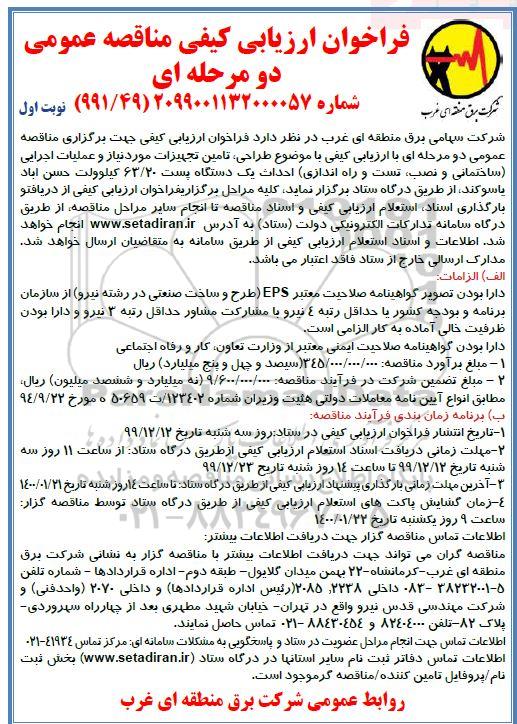 فراخوان ارزیابی کیفی مناقصه عمومی
دو مرحله ای
شماره ۲۰۹۹۰۰۱۱۳۲۰۰۰۰۵۷ (۹۹۱/۴۹) نوبت اول
شرکت برق منطقه ای غرب
شرکت سهامی برق منطقه ای غرب در نظر دارد فراخوان ارزیابی کیفی جهت برگزاری مناقصه
عمومی دو مرحله ای با ارزیابی کیفی با موضوع طراحی، تامین تجهیزات موردنیاز و عملیات اجرایی
(ساختمانی و نصب، تست و راه اندازی) احداث یک دستگاه پست ۶۳/۲۰ کیلوولت حسن اباد
یاسوکند، از طریق درگاه ستاد برگزار نماید، کلیه مراحل برگزاریفراخوان ارزیابی کیفی از دریافتو
بارگذاری اسناد، استعلام ارزیابی کیفی و اسناد مناقصه تا انجام سایر مراحل مناقصه، از طریق
درگاه سامانه مدارکات الکترونیکی دولت (ستاد) به آدرس www.setadiran.ir انجام خواهد
شد. اطلاعات و اسناد استعلام ارزیابی کیفی از طریق سامانه به متقاضیان ارسال خواهد شد.
مدارک ارسالی خارج از ستاد فاقد اعتبار می باشد.
الف) الزامات:
دارا بودن تصویر گواهینامه صلاحیت معتبر EPS (طرح و ساخت صنعتی در رشته نیرو) از سازمان
برنامه و بودجه کشور یا حداقل رتبه ۴ نیرو با مشارکت مشاور حداقل رتبه ۳ نیرو و دارا بودن
ظرفیت خالی آماده به کار الزامی است.
دارا بودن گواهینامه صلاحیت ایمنی معتبر از وزارت تعاون، کار و رفاه اجتماعی
۱- مبلغ برآورد مناقصه: ۳۴۵/۰۰۰/۰۰۰/۰۰۰(سیصد و چهل و پنج میلیارد) ریال
۲ - مبلغ تضمین شرکت در فرآیند مناقصه: ۹/۶۰۰/۰۰۰/۰۰۰ (نه میلیارد و ششصد میلیون) ریال،
مطابق انواع آیین نامه معاملات دولتی هئیت وزیران شماره ۱۲۳۴۰۲/ت ۵۰۶۵۹ ه مورخ ۹۴/۹/۲۲
ب) برنامه زمان بندی فرآیند مناقصه:
۱-تاریخ انتشار فراخوان ارزیابی کیفی در ستاد:روز سه شنبه تاریخ ۹۹/۱۲/۱۲
۲-مهلت زمانی دریافت اسناد استعلام ارزیابی کیفی ازطریق درگاه ستاد: از ساعت ۱۱ روز سه
شنبه تاریخ ۹۹/۱۲/۱۲ تا ساعت ۱۴ روز شنبه تاریخ ۹۹/۱۲/۲۳
۳-آخرین مهلت زمانی بارگذاری پیشنهاد ارزیابی کیفی از طریق درگاه ستاد: تا ساعت۱۴روز شنبه تاریخ ۱۴۰۰/۰۱/۲۱
۴-زمان گشایش پاکت های استعلام ارزیابی کیفی از طریق درگاه ستاد توسط مناقصه گزار:
ساعت ۹ روز یکشنبه تاریخ ۱۴۰۰/۰۱/۲۲
اطلاعات تماس مناقصه گزار جهت دریافت اطلاعات بیشتر:
مناقصه گران می تواند جهت دریافت اطلاعات بیشتر با مناقصه گزار به نشانی شرکت برق
منطقه ای غرب-کرمانشاه-۲۲ بهمن میدان گلایول- طبقه دوم- اداره قراردادها - شماره تلفن
۵-۳۸۲۳۲۰۰۱ -۰۸۳ داخلی ۲۲۳۸، ۲۰۸۵(رئیس اداره قراردادها) و داخلی ۲۰۷۰ (واحدفنی) و
شرکت مهندسی قدس نیرو واقع در تهران- خیابان شهید مطهری بعد از چهارراه سهروردی-
پلاک ۸۲-تلفن ۸۲۴۰۴۰۰۰ و ۸۸۴۳۰۴۵۴ -۰۲۱ تماس حاصل نمایند.
اطلاعات تماس جهت انجام مراحل عضویت در ستاد و پاسخگویی به مشکلات سامانه ای: مرکز تماس ۴۱۹۳۴-۰۲۱
اطلاعات تماس دفاتر ثبت نام سایر استانها در درگاه ستاد (www.setadiran.ir) بخش ثبت
نام/پروفایل تامین کننده/مناقصه گرموجود است.
روابط عمومی شرکت برق منطقه ای غرب
۰۲۱-۸۸۳۴۹۶۷۰-۵